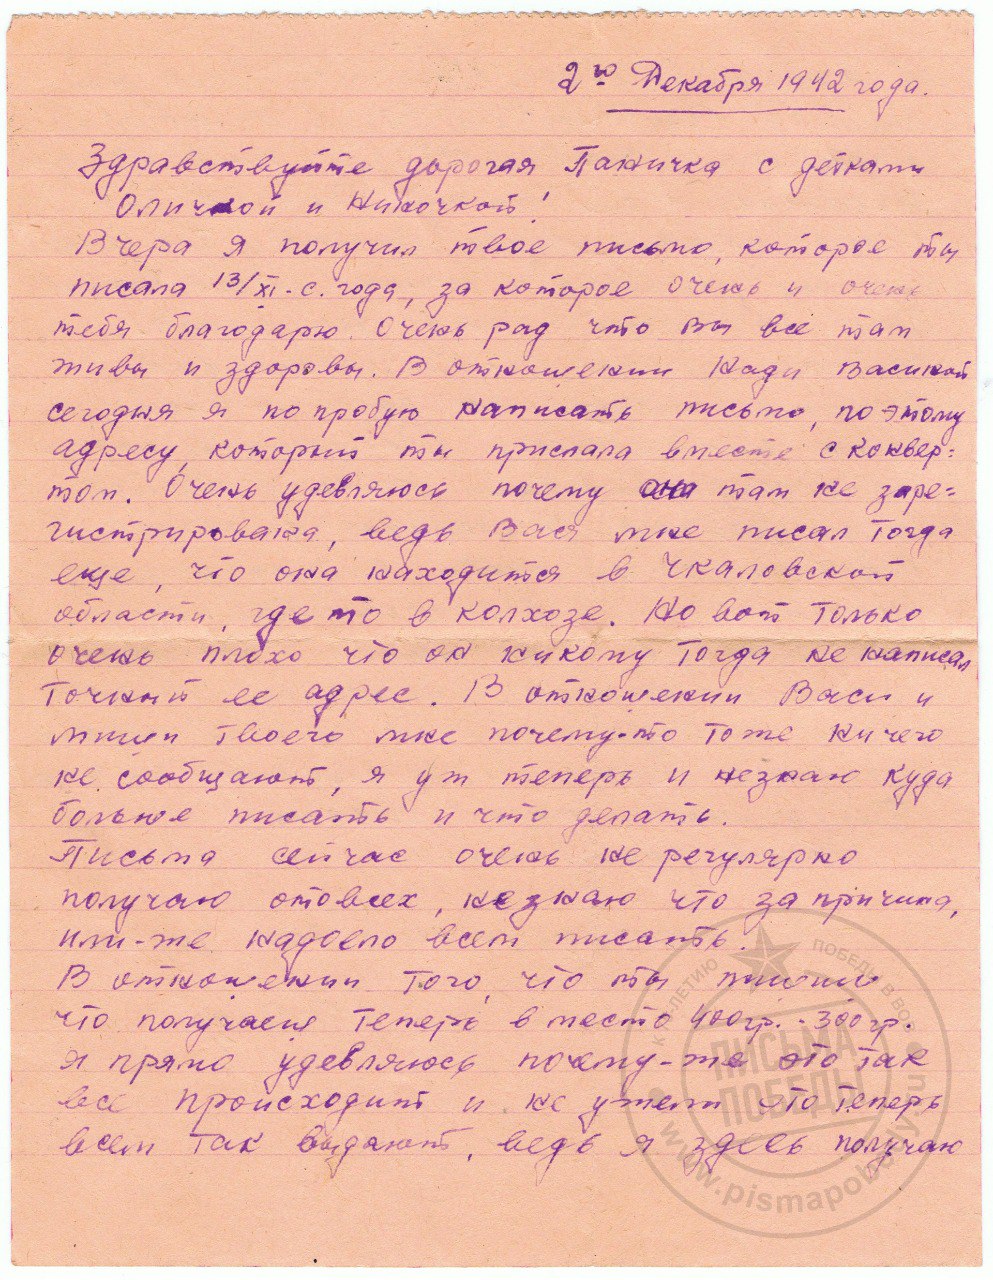 2го Декабря 1942 года.
Здравствуйте дорогая Паничка с детками
Оличкой и Ниночкой!
Вчера я получил твое письмо, которое ты
писала 13/XI-с. года, за которое очень и очень
тебя благодарю. Очень рад что вы все там
живы и здоровы. В отношении Нади Васиной
сегодня я попробую написать письмо, поэтому
адресу, который ты прислала вместе с конвер=
том. Очень удевляюсь почему она там не заре=
гистрирована, ведь Вася мне писал тогда
еще, что она находится в Чкаловской
области, где то в колхозе. Но вот только
очень плохо что он никому тогда не написал
точный ее адрес. В отношении Васи и
Миши твоего мне почему-то тоже ничего
не сообщают, я уж теперь и незнаю куда
больше писать и что делать.
Письма сейчас очень не регулярно
получаю отовсех, незнаю что за причина,
или-же надоело всем писать.
В отношении того, что ты пишеш
что получаеш теперь в место 400гр.-300гр.
я прямо удевляюсь почему-же это так
все происходит и не ужели это теперь
всем так выдают, ведь я здесь получаю
К -ЛЕТИЮ ПОБЕДЫ В ВОВ
ПИСЬМА
ПОБЕДЫ
www.pismapobedy.ru